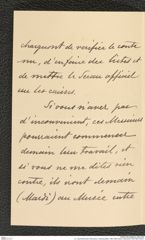 chargeront de vérifier le conte
nu, d'en faire des listes et
de mettre le sceau officiel
sur les caisses.
Si vous n'avez pas
d'inconvénient, ces Messieurs
pourraient commencer
demain leur travail, et
si vous ne me dites rien
contre, ils iront demain
(Mardi) au Musée entre